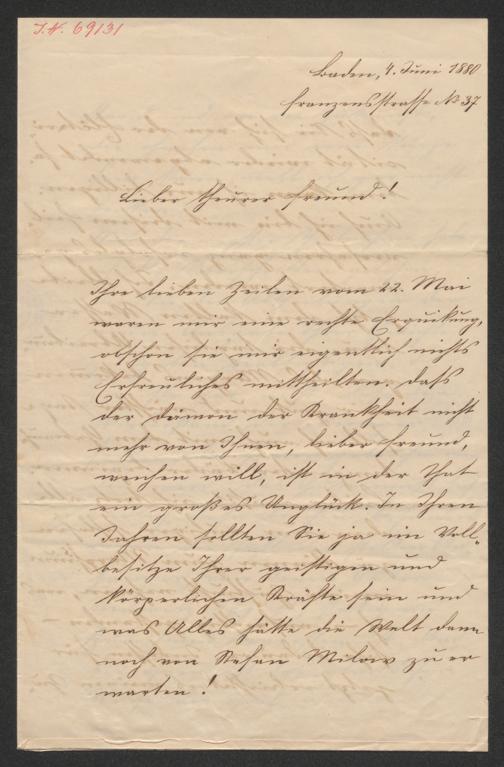 J. N. 69131
Baden, 4. Juni 1880
Franzensstrasse No 37
Lieber theurer Freund!
Ihre lieben Zeilen vom 22. Mai
waren mir eine rechte Erquikung,
obschon sie mir eigentlich nichts
Erfreuliches mittheilten. dass
der dämon der Krankheit nicht
mehr von Ihnen, lieber Freund,
weichen will, ist in der That
ein großes Unglück. In Ihren
Jahren sollten Sie ja im Voll-
besitze Ihrer geistigen und
körperlichen Kräfte sein und
was Alles hätte die Welt dann
noch von Stefan Milow zu er
warten!